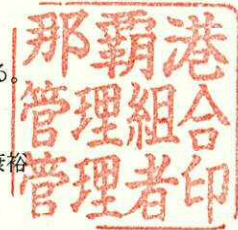 る。
那覇港
管理組合
管理者印
裕